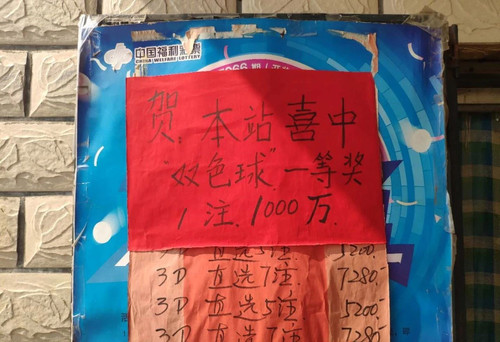 中国福利彩票
CHINA WELFARE LOTTERY
066期
贺:本站喜中
"双色球"一等奖
1注.1000万.
直选5注 5200.-
3D 直选7注 7280.-
3D 直选5注 5200.-
3D 直选7注 7280.-